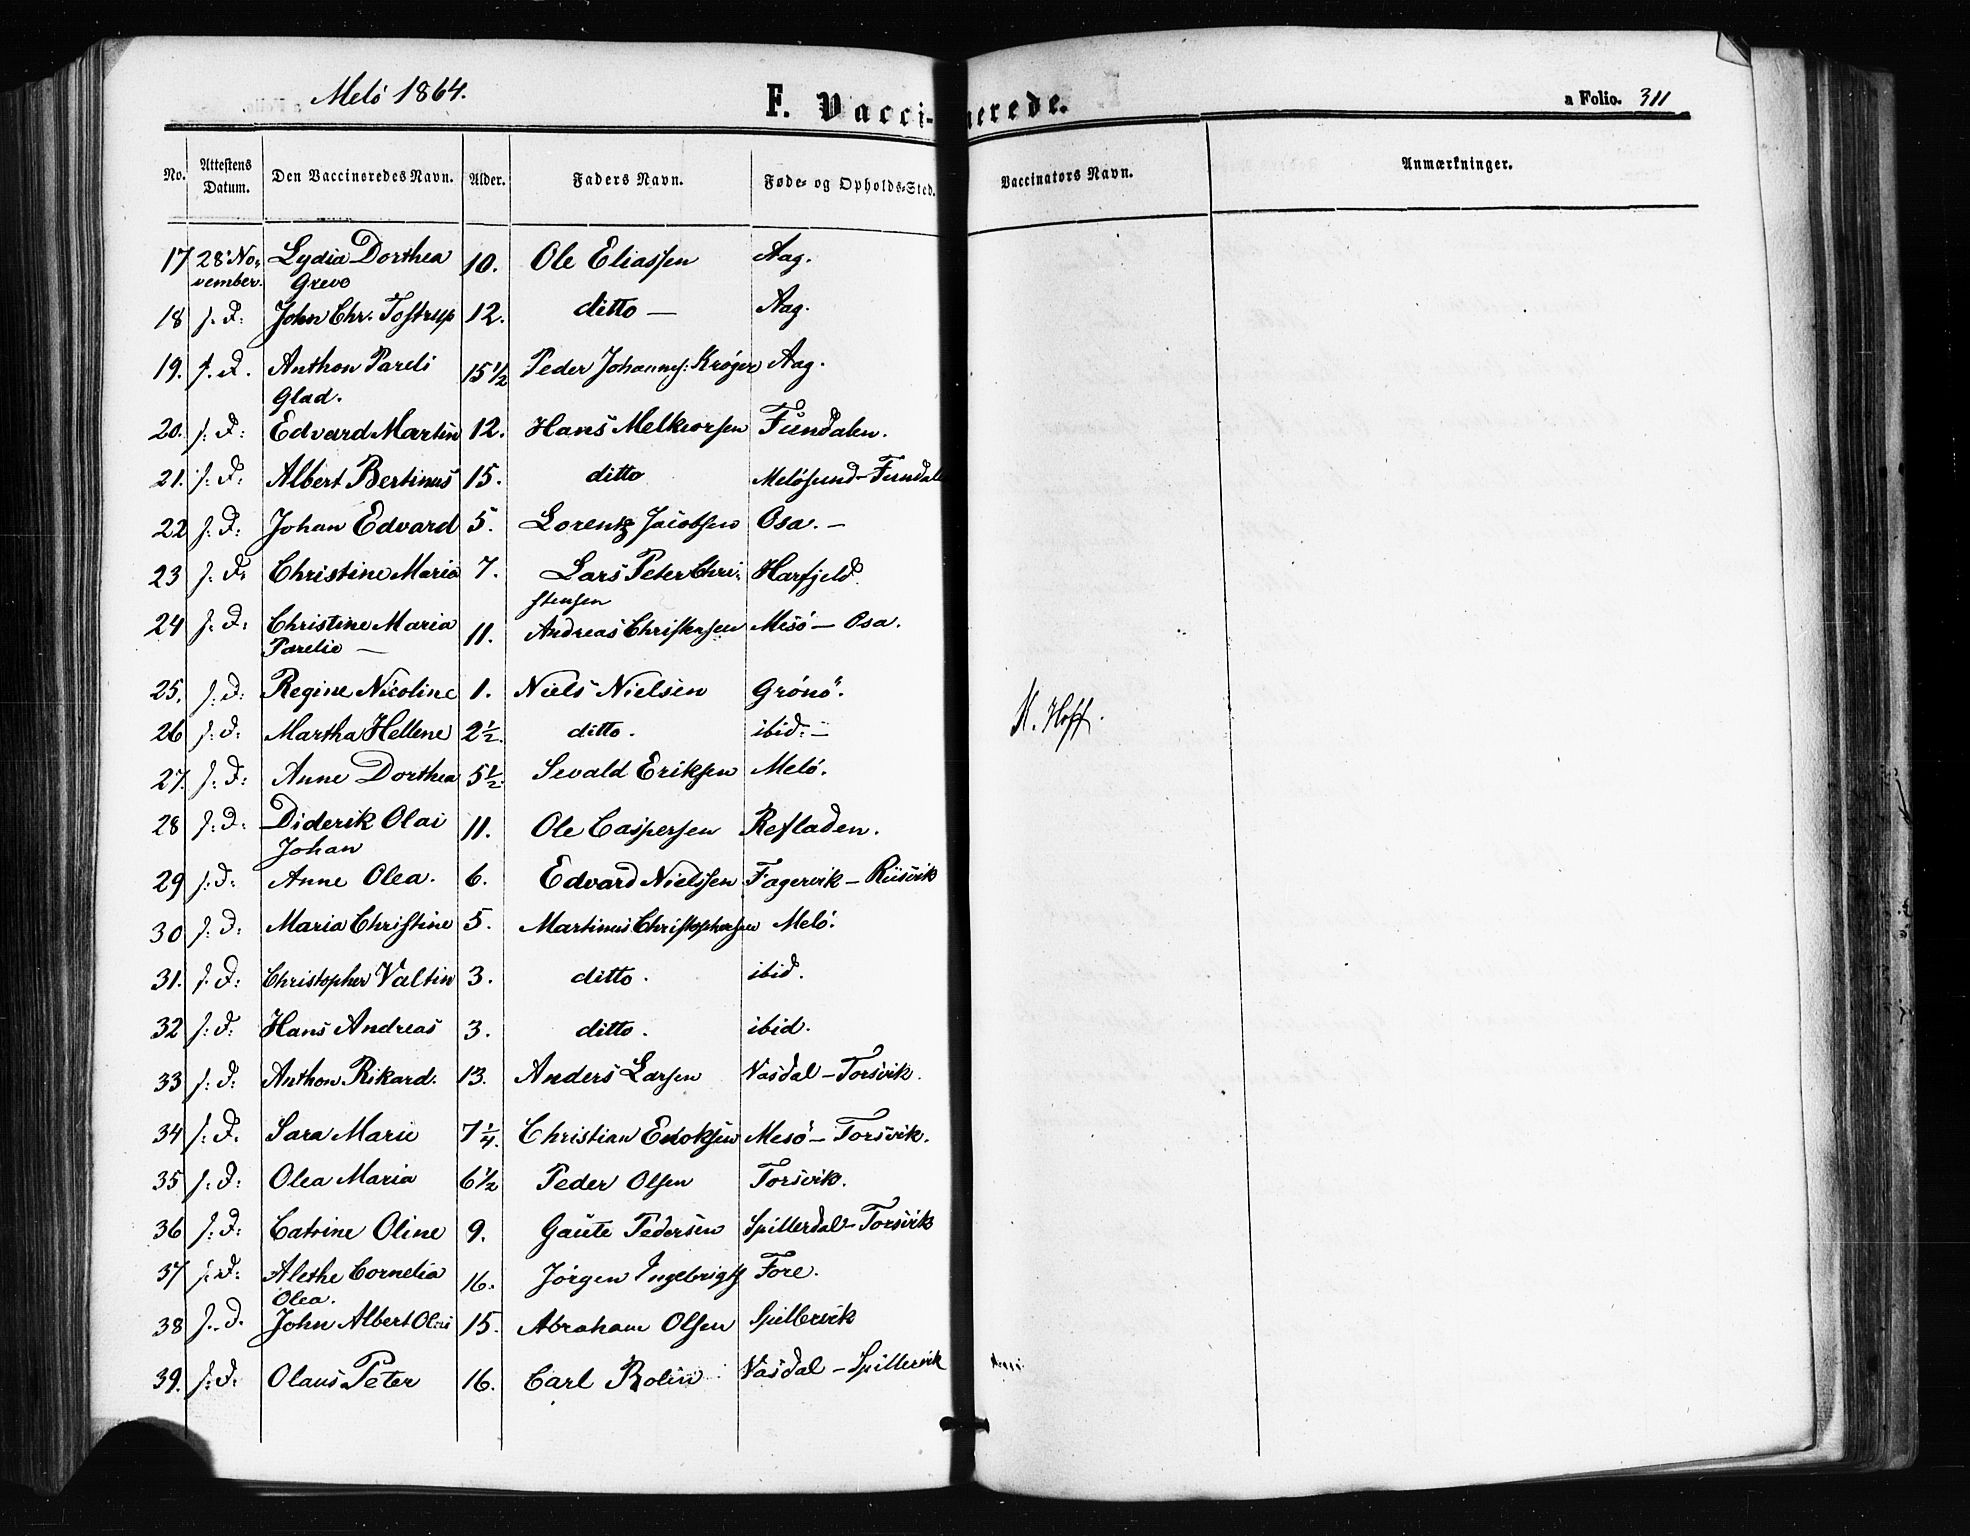 Melö 1864.
F. Vaccinerede.
a Folio. 311
No. Attestens Datum. Den Vaccineredes Navn. Alder. Faders Navn. Føde- og Opholds-Sted. Vaccinators Navn. Anmærkninger.
17 28' No- Lydia Dorthea 10. Ole Eliassen Aag.
vember. Greve
18 s. D: John Chr. Tostrup 12. ditto — Aag.
19. s. D. Anthon Pareli 15 1/2 Peder Johannes: Krøger Aag.
Glad.
20. s: D: Edvard Martin 12. Hans Melkiorsen Fundalen.
21. s: D: Albert Bertinus 15. ditto Melösund - Fundale
22 s: D: Johan Edvard 5. Lorentz Jacobsen Osa. —
23 s: D: Christine Maria 7. Lars Peter Chri- Harfjeld.
stensen
24 s: D: Christine Maria 11. Andreas Christensen Mesö — Osa.
Parelie —
25. s: D: Regine Nicoline 1. Niels Nielsen Grönö.
26 s: D: Martha Hellene 2 1/2. ditto. ibid. — N. Hoff.
27. s: D: Anne Dorthea 5 1/2. Sevald Eriksen Melö.
28 s: D: Diderik Olai 11. Ole Caspersen Refladen.
Johan
29 s: D: Anne Olea. 6. Edvard Nielssen Fagervik — Riisvik
30 s: D: Maria Christine 5. Martinus Christophersen Melö.
31. s. D: Christopher Valtin 3. ditto. ibid.
32 s: D: Hans Andreas 3. ditto. ibid.
33 s: D: Anthon Rikard. 13. Anders Larsen Vasdal — Torsvik.
34 s: D. Sara Marie 7 1/4. Christian Enoksen Mesö — Torsvik.
35 s: D: Olea Maria 6 1/2 Peder Olsen Torsvik.
36 s: D: Catrine Oline 9. Gaute Pedersen Spillerdal — Torsvik
37 s: D: Alethe Cornelia 16. Jörgen Ingebrigts Fore.
Olea.
38 s. D. John Albert Olai 15. Abraham Olsen Spillervik
39. s: D: Olaus Peter 16. Carl Rolin Vasdal — Spillervik